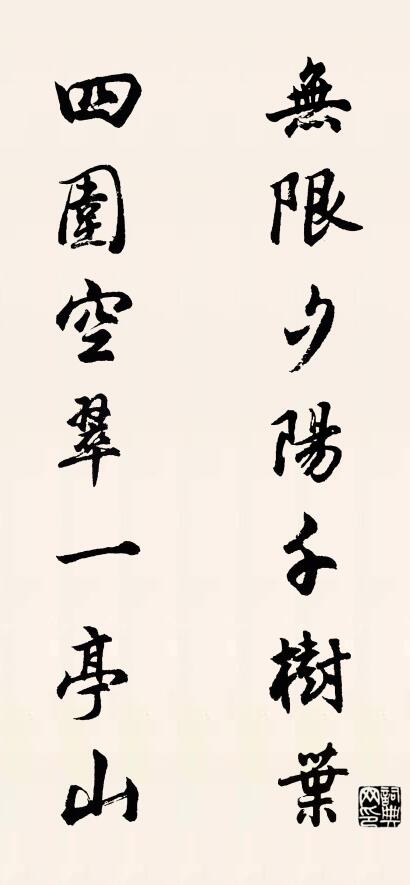 無限夕陽千樹葉
四圍空翠一亭山
詞典
网印